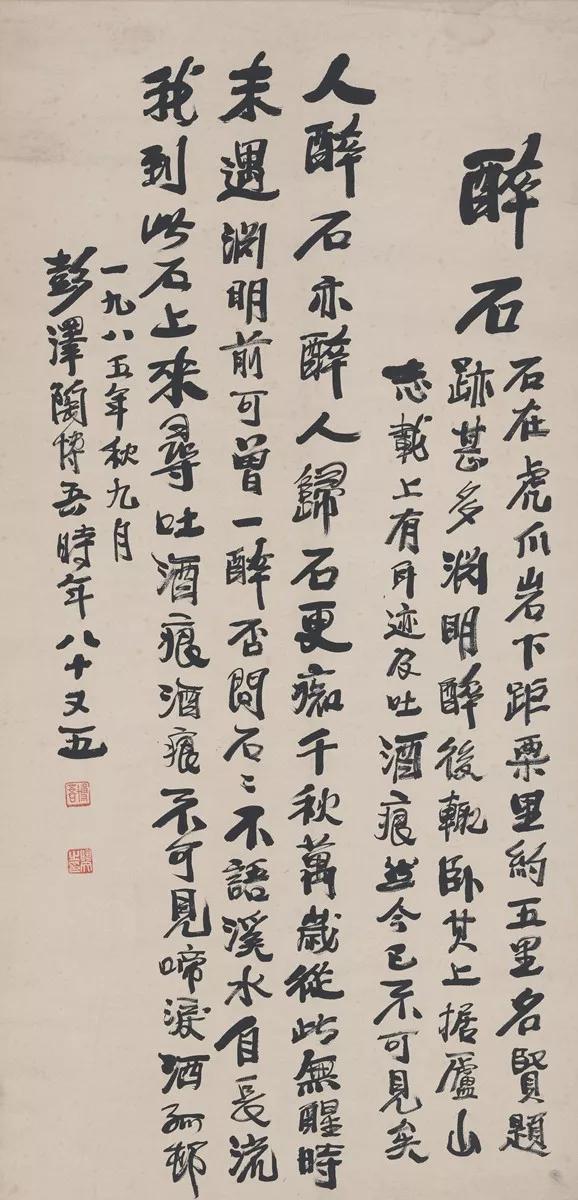 醉石
石在虎爪岩下距栗里約五里名賢題
跡甚多淵明醉後輒卧其上據廬山
志載上有耳迹及吐酒痕然今已不可見矣
人醉石亦醉人歸石更痴千秋萬歲從此無醒時
未遇淵明前可曾一醉否問石〻不語溪水自長流
我到此石上來尋吐酒痕酒痕不可見啼淚洒孤邨
一九八五年秋九月
彭澤陶博吾時年八十又五